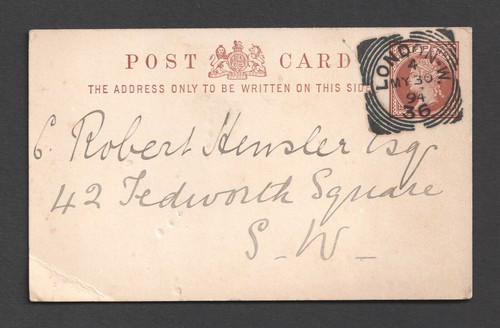 POST CARD
THE ADDRESS ONLY TO BE WRITTEN ON THIS SIDE
LONDON.W.
4
MY 30
94
36
C. Robert Hensler Esq
42 Tedworth Square
S. W.